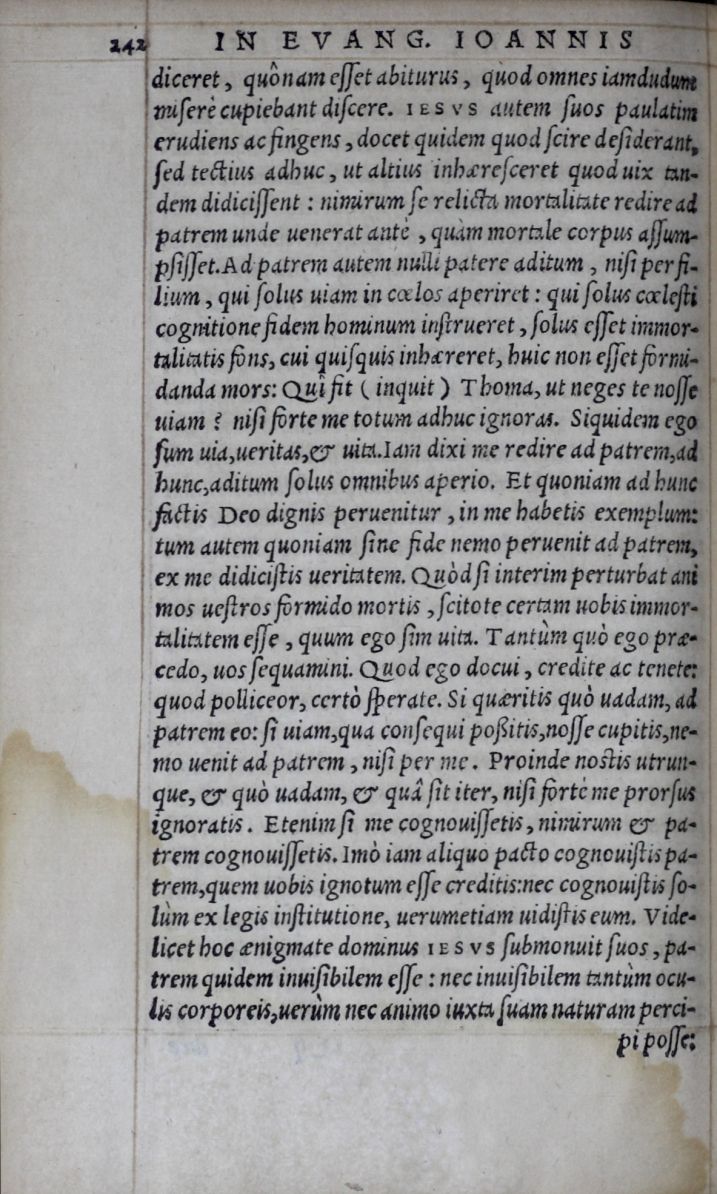 242 IN EVANG. IOANNIS
diceret, quônam eſſet abiturus, quòd omnes iamdudum
miſerè cupiebant diſcere. IESVS autem ſuos paulatim
erudiens ac fingens, docet quidem quod ſcire deſiderant,
ſed tectius adhuc, ut altius inhæreſceret quod uix tan-
dem didiciſſent : nimirum ſe relicta mortalitate redire ad
patrem unde uenerat antè, quàm mortale corpus aſſum-
pſiſſet. Ad patrem autem nulli patere aditum, niſi per fi-
lium, qui ſolus uiam in cœlos aperiret : qui ſolus cœleſti
cognitione fidem hominum inſtrueret, ſolus eſſet immor-
talitatis fons, cui quiſquis inhæreret, huic non eſſet formi-
danda mors: Quî fit ( inquit ) Thoma, ut neges te noſſe
uiam ? niſi forte me totum adhuc ignoras. Siquidem ego
ſum uia, ueritas, & uita. Iam dixi me redire ad patrem, ad
hunc, aditum ſolus omnibus aperio. Et quoniam ad hunc
factis Deo dignis peruenitur, in me habetis exemplum:
tum autem quoniam ſine fide nemo peruenit ad patrem,
ex me didiciſtis ueritatem. Quòd ſi interim perturbat ani
mos ueſtros formido mortis, ſcitote certam uobis immor-
talitatem eſſe, quum ego ſim uita. Tantùm quò ego præ-
cedo, uos ſequamini. Quod ego docui, credite ac tenete:
quod polliceor, certò ſperate. Si quæritis quò uadam, ad
patrem eo: ſi uiam, qua conſequi poßitis, noſſe cupitis, ne-
mo uenit ad patrem, niſi per me. Proinde noſtis utrun-
que, & quò uadam, & quâ ſit iter, niſi fortè me prorſus
ignoratis. Etenim ſi me cognouiſſetis, nimirum & pa-
trem cognouiſſetis. Imò iam aliquo pacto cognouiſtis pa-
trem, quem uobis ignotum eſſe creditis: nec cognouiſtis ſo-
lùm ex legis inſtitutione, uerumetiam uidiſtis eum. Vide-
licet hoc ænigmate dominus IESVS ſubmonuit ſuos, pa-
trem quidem inuiſibilem eſſe : nec inuiſibilem tantùm ocu-
lis corporeis, uerùm nec animo iuxta ſuam naturam perci-
pi poſſe: